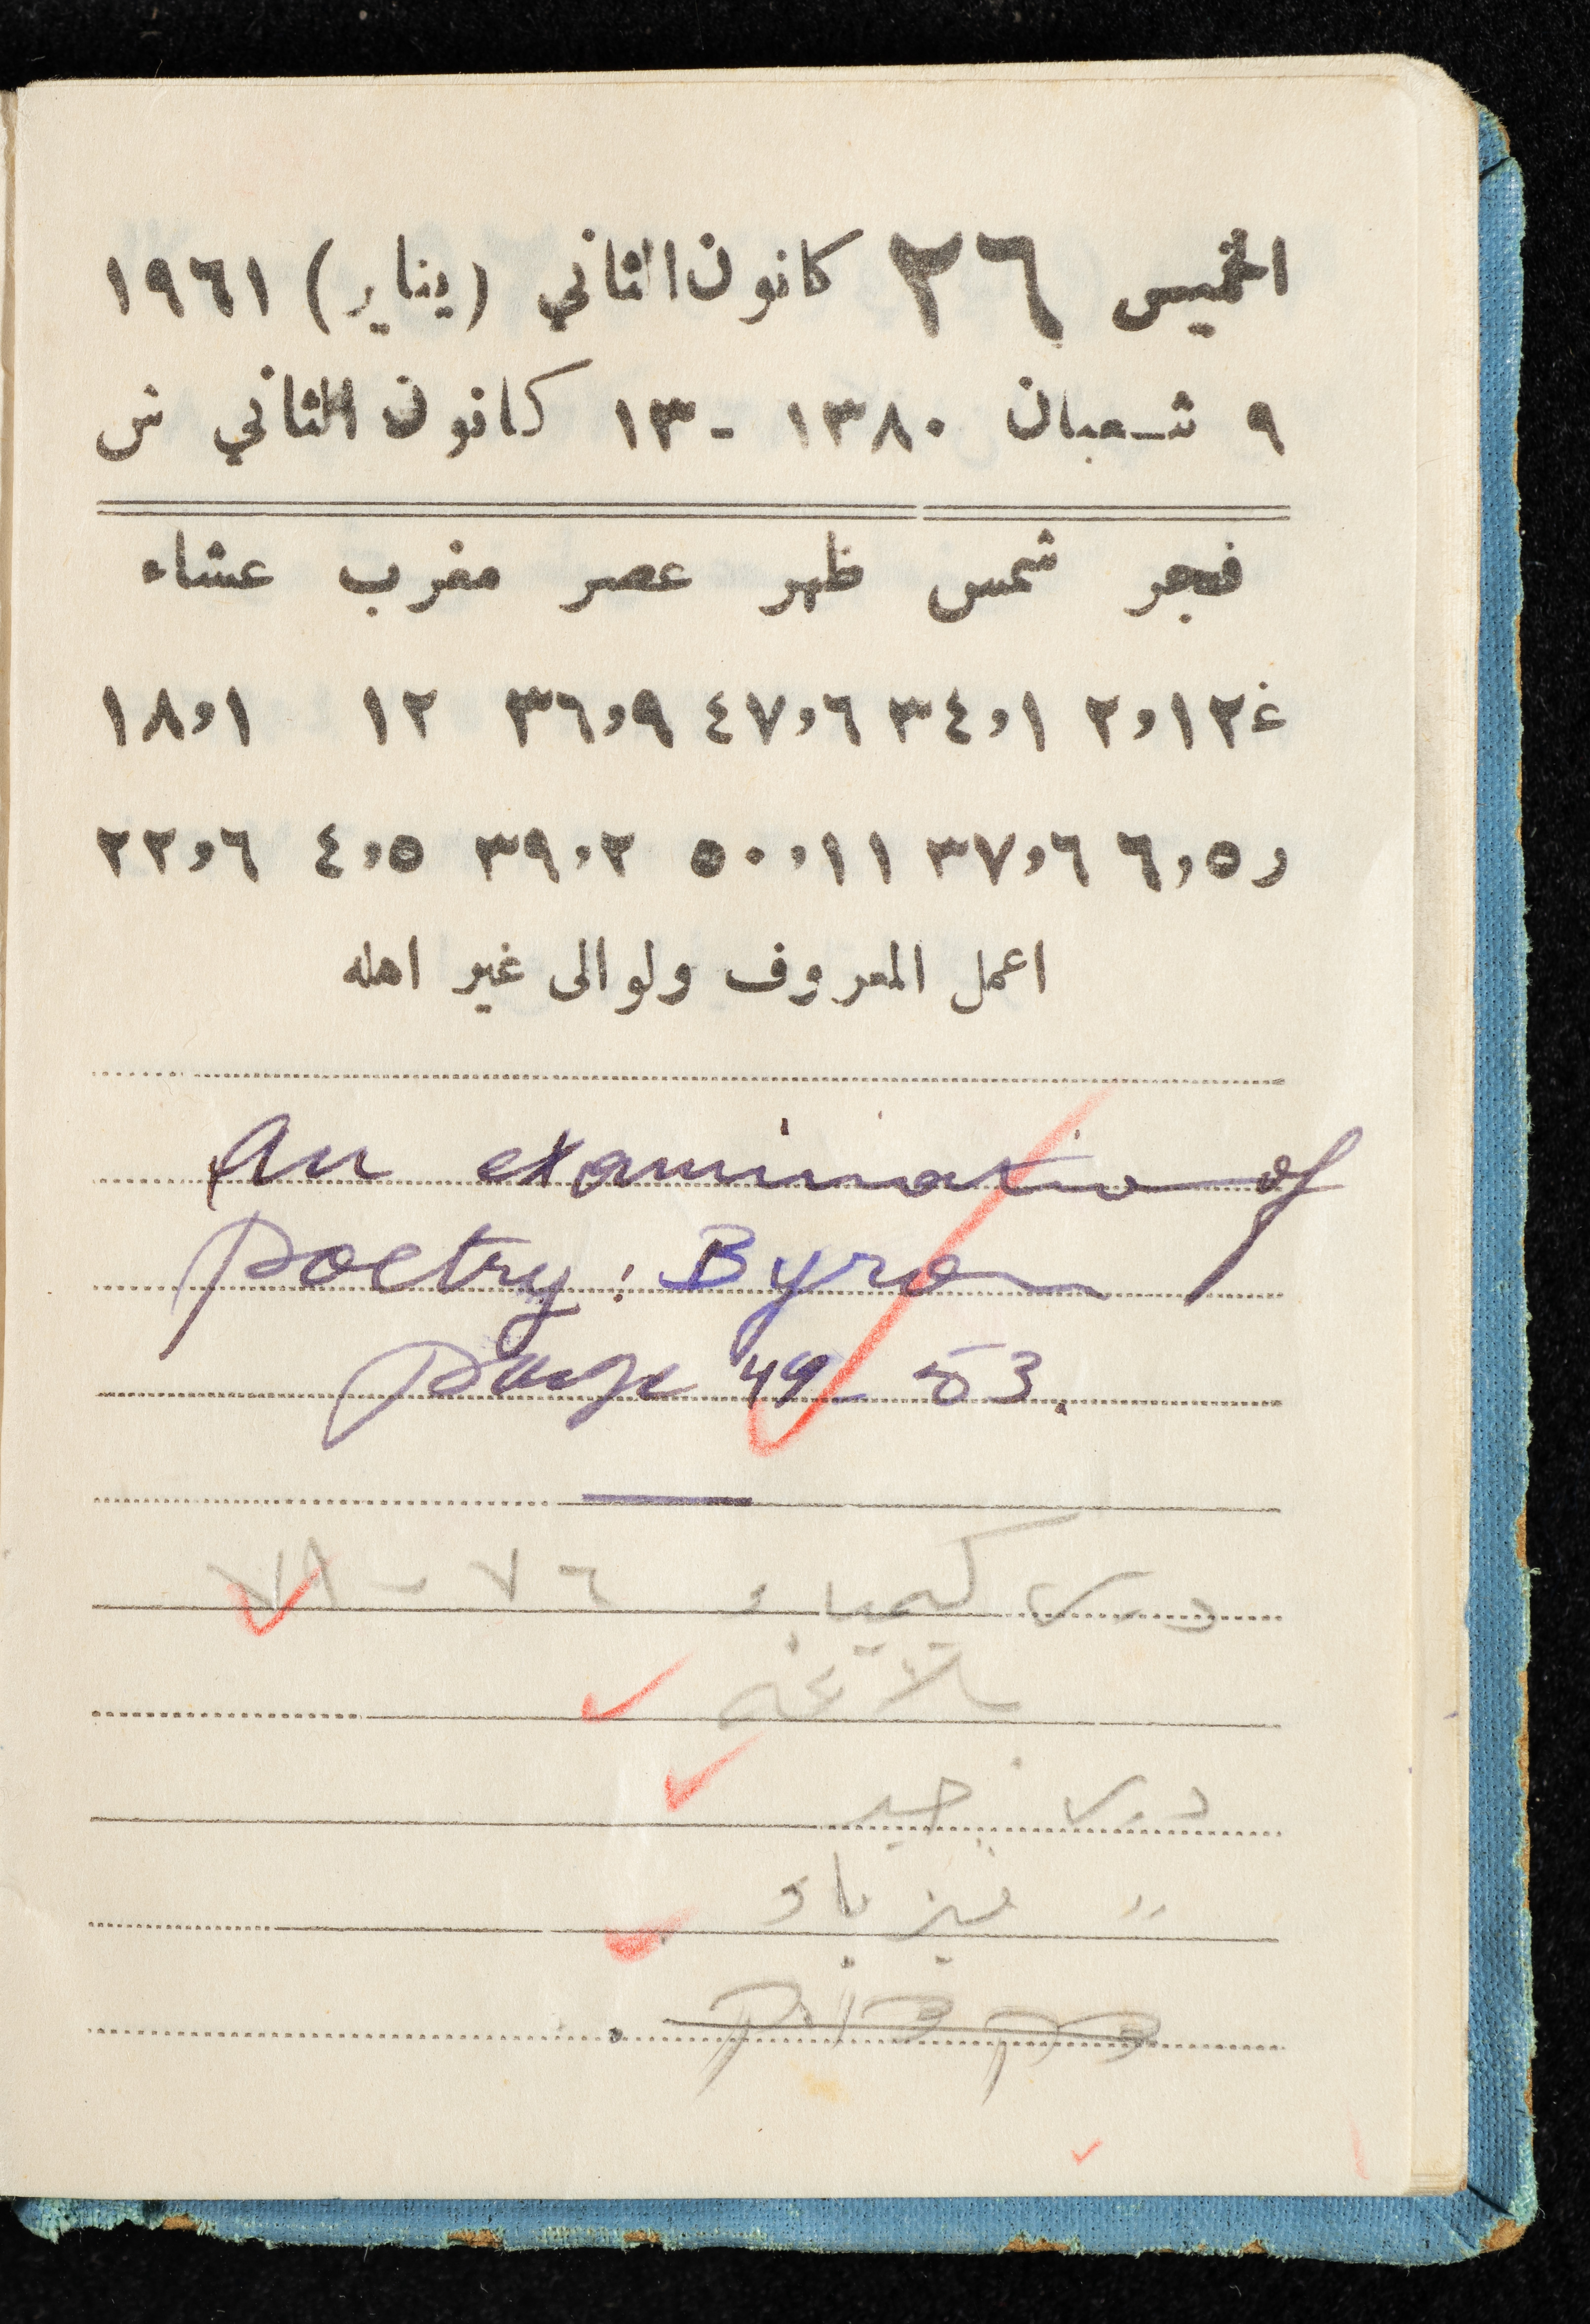 الخميس ٢٦ كانون الثاني (يناير) ١٩٦١
٩ شعبان ١٣٨٠ - ١٣ كانون الثاني ش
فجر شمس ظهر عصر مغرب عشاء
غ ٢,١٢ ٣٤,١ ٤٧,٦ ٣٦,٩ ١٢ ١٨,١
ر ٦,٥ ٣٧,٦ ٥٠,١١ ٣٩,٢ ٤,٥ ٢٢,٦
اعمل المعروف ولو الى غير اهله
An examination of
poetry: Byron
page 49 - 53.
درس كيمياء ٧٦ - ٧٨
بلاغة
درس جبر
〃 فيزياء